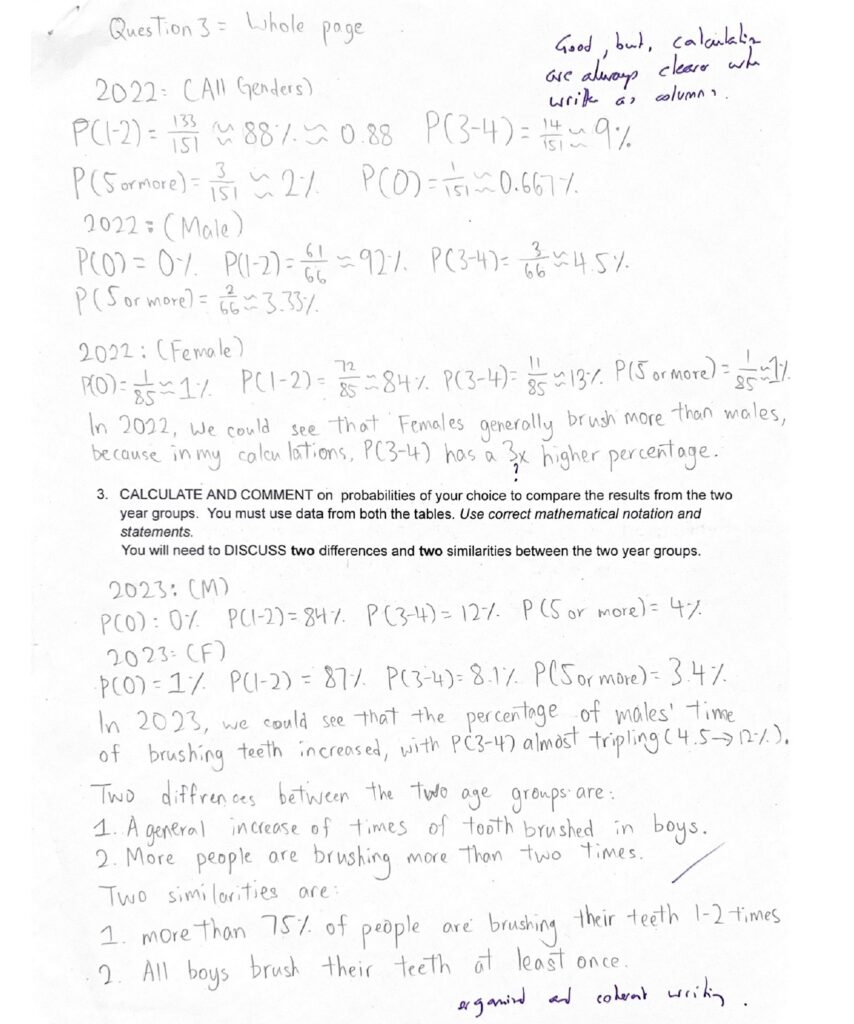 Question 3 = Whole page
Good, but, calculatin
are always clearer wh
write as columns.
2022: (All Genders)
P(1-2) = 133/151 ≈ 88% ≈ 0.88 P(3-4) = 14/151 ≈ 9%
P(5 or more) = 3/151 ≈ 2% P(0) = 1/151 ≈ 0.667%
2022: (Male)
P(0) = 0% P(1-2) = 61/66 ≈ 92% P(3-4) = 3/66 ≈ 4.5%
P(5 or more) = 2/66 ≈ 3.33%
2022: (Female)
P(0) = 1/85 ≈ 1% P(1-2) = 72/85 ≈ 84% P(3-4) = 11/85 ≈ 13% P(5 or more) = 1/85 ≈ 1%
In 2022, we could see that Females generally brush more than males,
because in my calculations, P(3-4) has a 3x higher percentage.
?
3. CALCULATE AND COMMENT on probabilities of your choice to compare the results from the two
year groups. You must use data from both the tables. Use correct mathematical notation and
statements.
You will need to DISCUSS two differences and two similarities between the two year groups.
2023: (M)
P(0): 0% P(1-2) = 84% P(3-4) = 12% P(5 or more) = 4%
2023: (F)
P(0) = 1% P(1-2) = 87% P(3-4) = 8.1% P(5 or more) = 3.4%
In 2023, we could see that the percentage of males' time
of brushing teeth increased, with P(3-4) almost tripling (4.5→12%).
Two diffrences between the two age groups are:
1. A general increase of times of tooth brushed in boys.
2. More people are brushing more than two times.
Two similarities are:
1. more than 75% of people are brushing their teeth 1-2 times
2. All boys brush their teeth at least once.
organised and coherent writing.